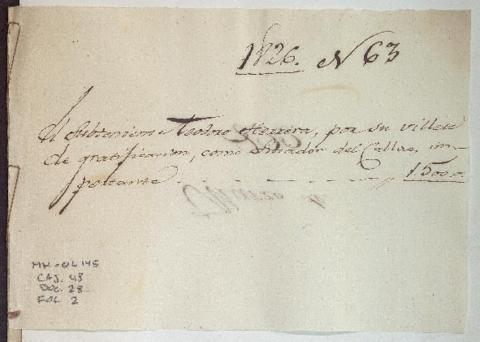 1826. N 63
El Subteniente Teodoro Herrera, por su villete
de gratificacion, como Sitiador del Callao, im-
portante 1500 p.
MH-OL 145
CAJ. 43
DOC. 28
FOL 2